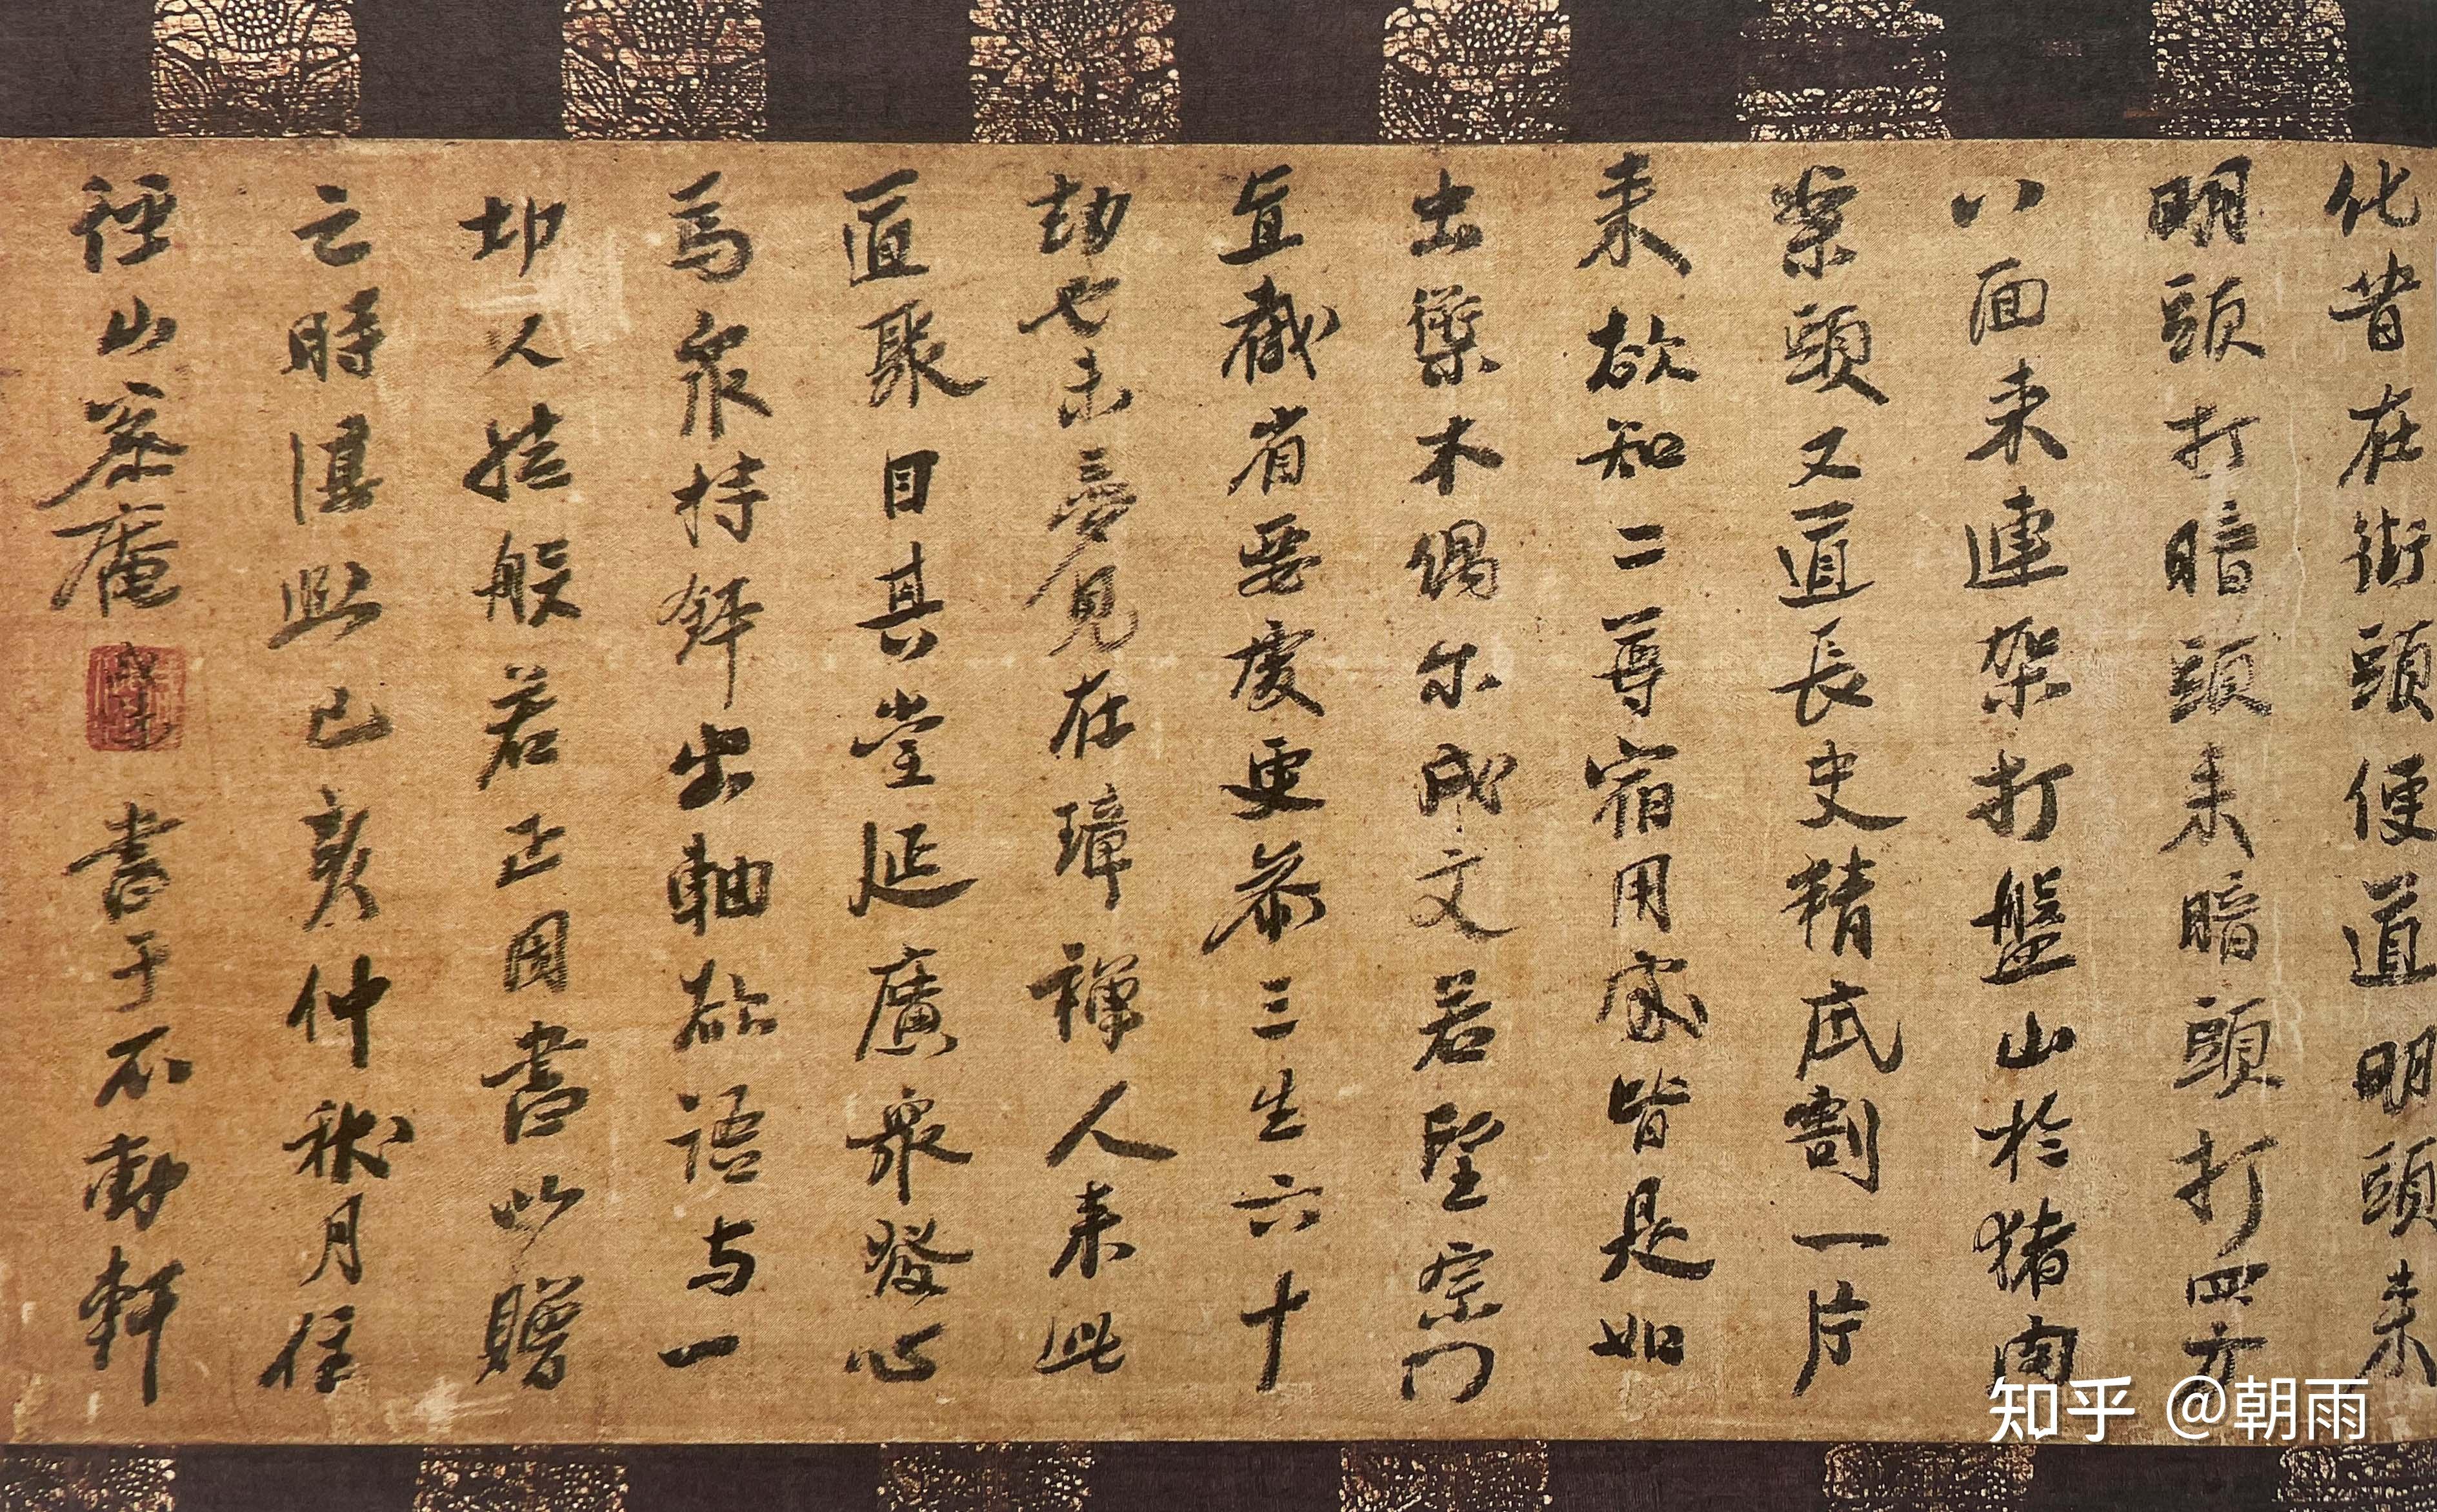 化昔在街頭便道明頭来
明頭打暗頭来暗頭打四方
八面来連架打盤山於猪肉
案頭又道長史精底割一片
来欲知二尊宿用處皆是如
虫禦木偶尓成文若望宗門
直截省要處更参三生六十
劫也未夢見在璋禅人来此
道聚目其堂延廣衆發心
為衆持鉢出軸欲語与一
切人結般若正因書以贈
之時淳熙己亥仲秋月住
徑山密庵咸傑書于不動軒
知乎 @朝雨